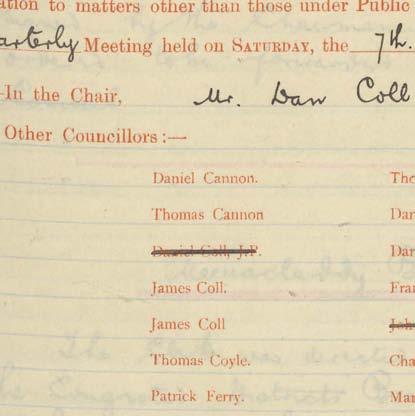 ation to matters other than those under Public
arterly Meeting held on SATURDAY, the 7th.
In the Chair, Mr. Dan Coll
Other Councillors :—
Daniel Cannon. Tho
Thomas Cannon Dan
Daniel Coll, J.P. Dan
James Coll. Fran
James Coll Joh
Thomas Coyle. Cha
Patrick Ferry. Man